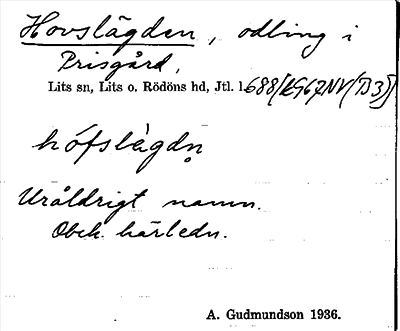 Hovslägden, odling i
Prisgård,
Lits sn, Lits o. Rödöns hd, Jtl. l.
hófslègdn̥
Uråldrigt namn.
Obek. härledn.
A. Gudmundson 1936.